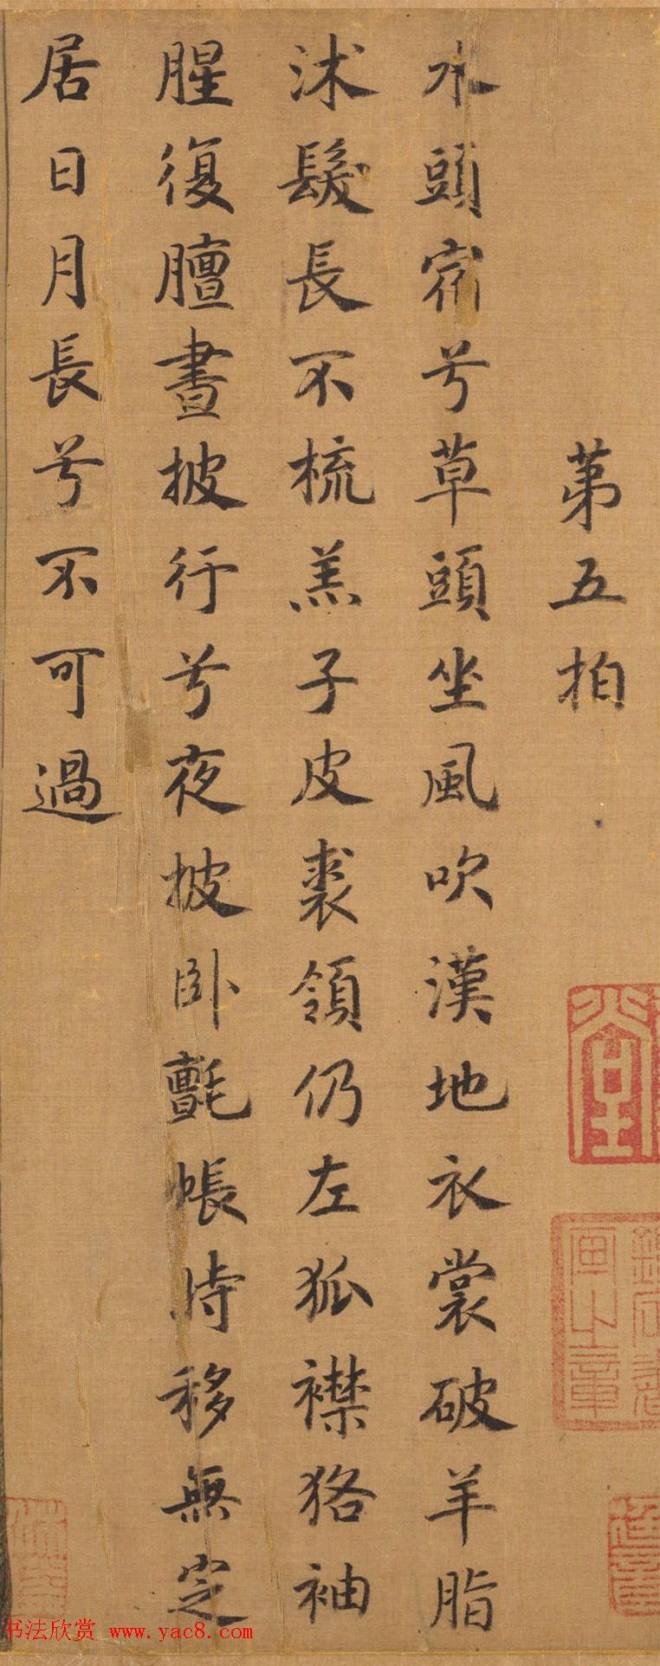 第五拍
水頭宿兮草頭坐風吹漢地衣裳破羊脂
沐髮長不梳羔子皮裘領仍左狐襟狢袖
腥復膻晝披行兮夜披卧氈帳時移無定
居日月長兮不可過
书法欣赏 www.yac8.com